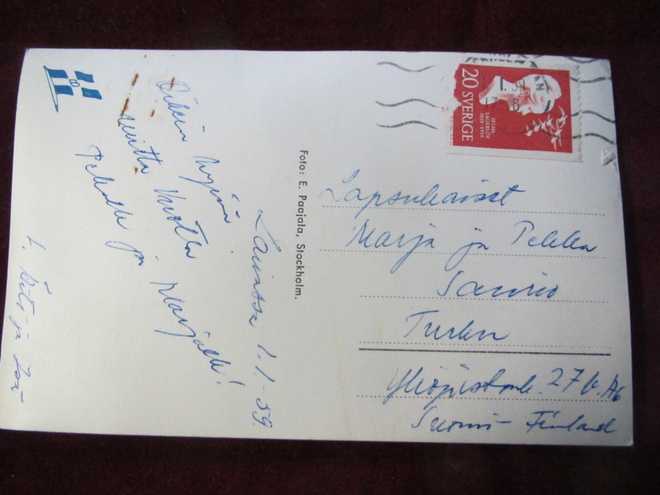 Laivassa 1.1-59.
Oikein hyvää
uutta vuotta
Pekalle ja Marjalle!
t. Äiti ja Isä
Foto: E. Paajala, Stockholm.
20 SVERIGE
SELMA
LAGERLÖF
1858-1958
Lapsukaiset
Marja ja Pekka
Saurio
Turku
Yliopistonk. 27 b. A6
Suomi-Finland